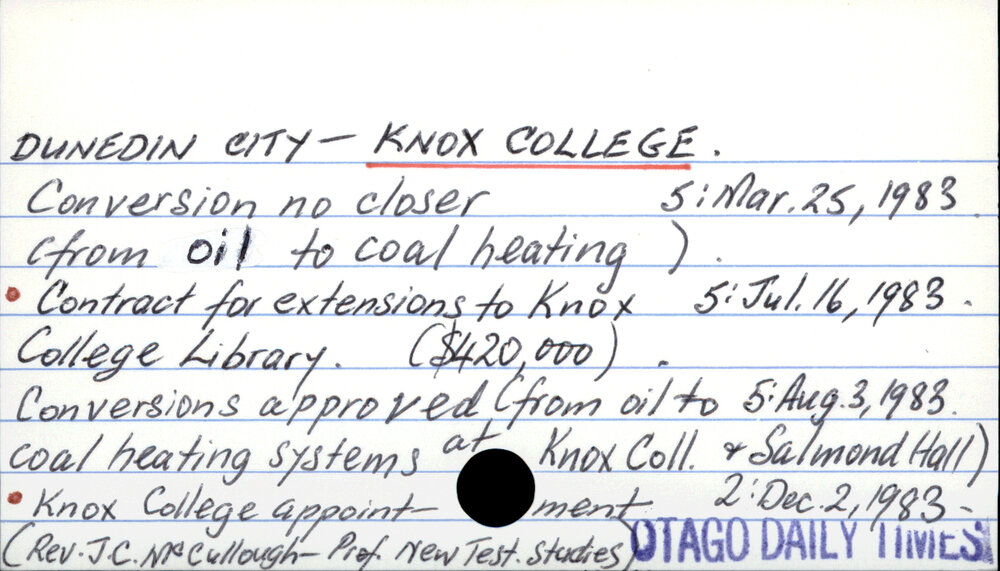 DUNEDIN CITY – KNOX COLLEGE.
Conversion no closer 5: Mar. 25, 1983
(from oil to coal heating).
• Contract for extensions to Knox 5: Jul. 16, 1983.
College Library. ($420,000).
Conversions approved (from oil to 5: Aug. 3, 1983.
coal heating systems at Knox Coll. & Salmond Hall)
• Knox College appoint- ment 2: Dec. 2, 1983 -
(Rev. J.C. McCullough – Prof. New Test. Studies) OTAGO DAILY TIMES